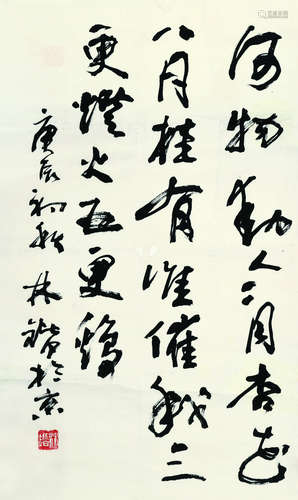 何物動人二月杏花
八月桂有誰催我三
更燈火五更鷄
庚辰初秋林锴於京